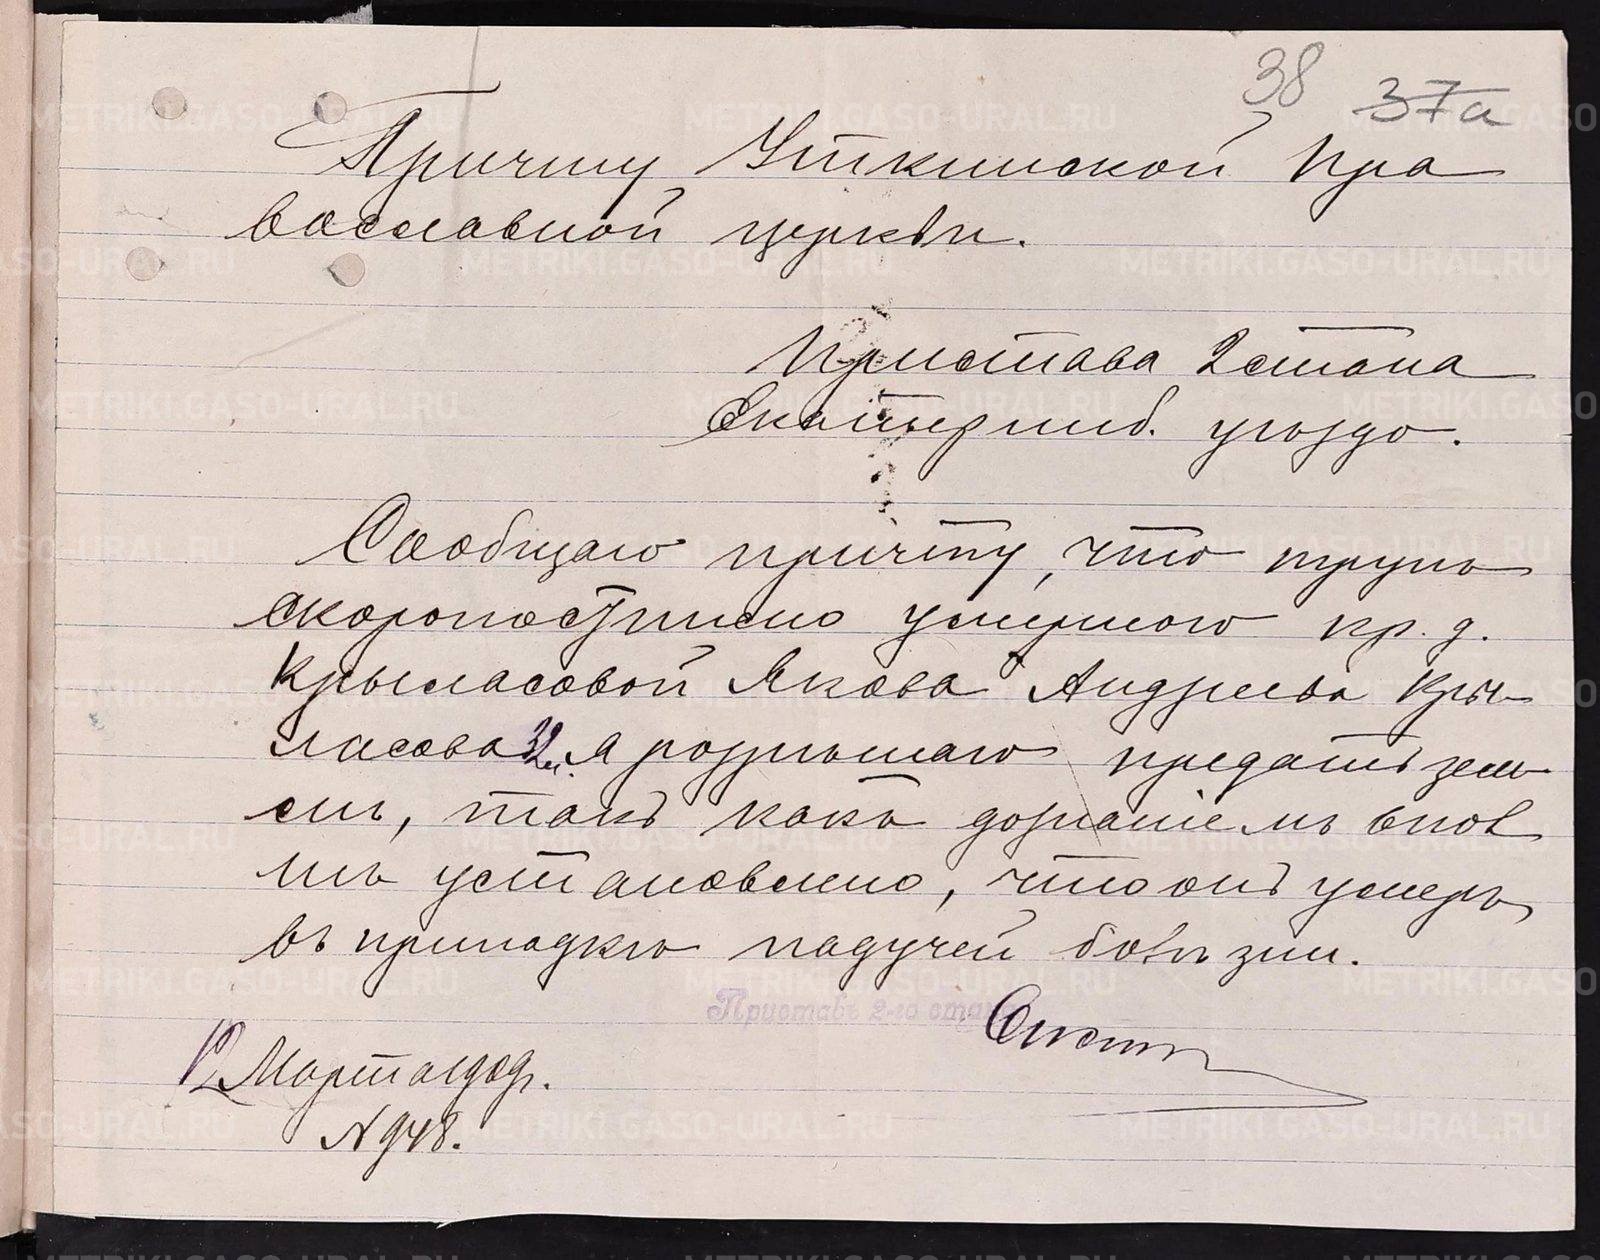 38 37а
Причту Уткинской Пра
вославной церкви.
Пристава 2 стана
Екатеринб. уѣзда.
Сообщаю причту, что трупъ
скоропостижно умершаго кр. д.
Крыласовой Якова Андреева Кры-
ласова 32 л. я разрѣшаю предать зем-
лѣ, такъ какъ дознаніемъ впол
нѣ установлено, что онъ умеръ
въ припадкѣ падучей болѣзни.
Приставъ 2-го стана
12 Марта 1909 г.
N 948.